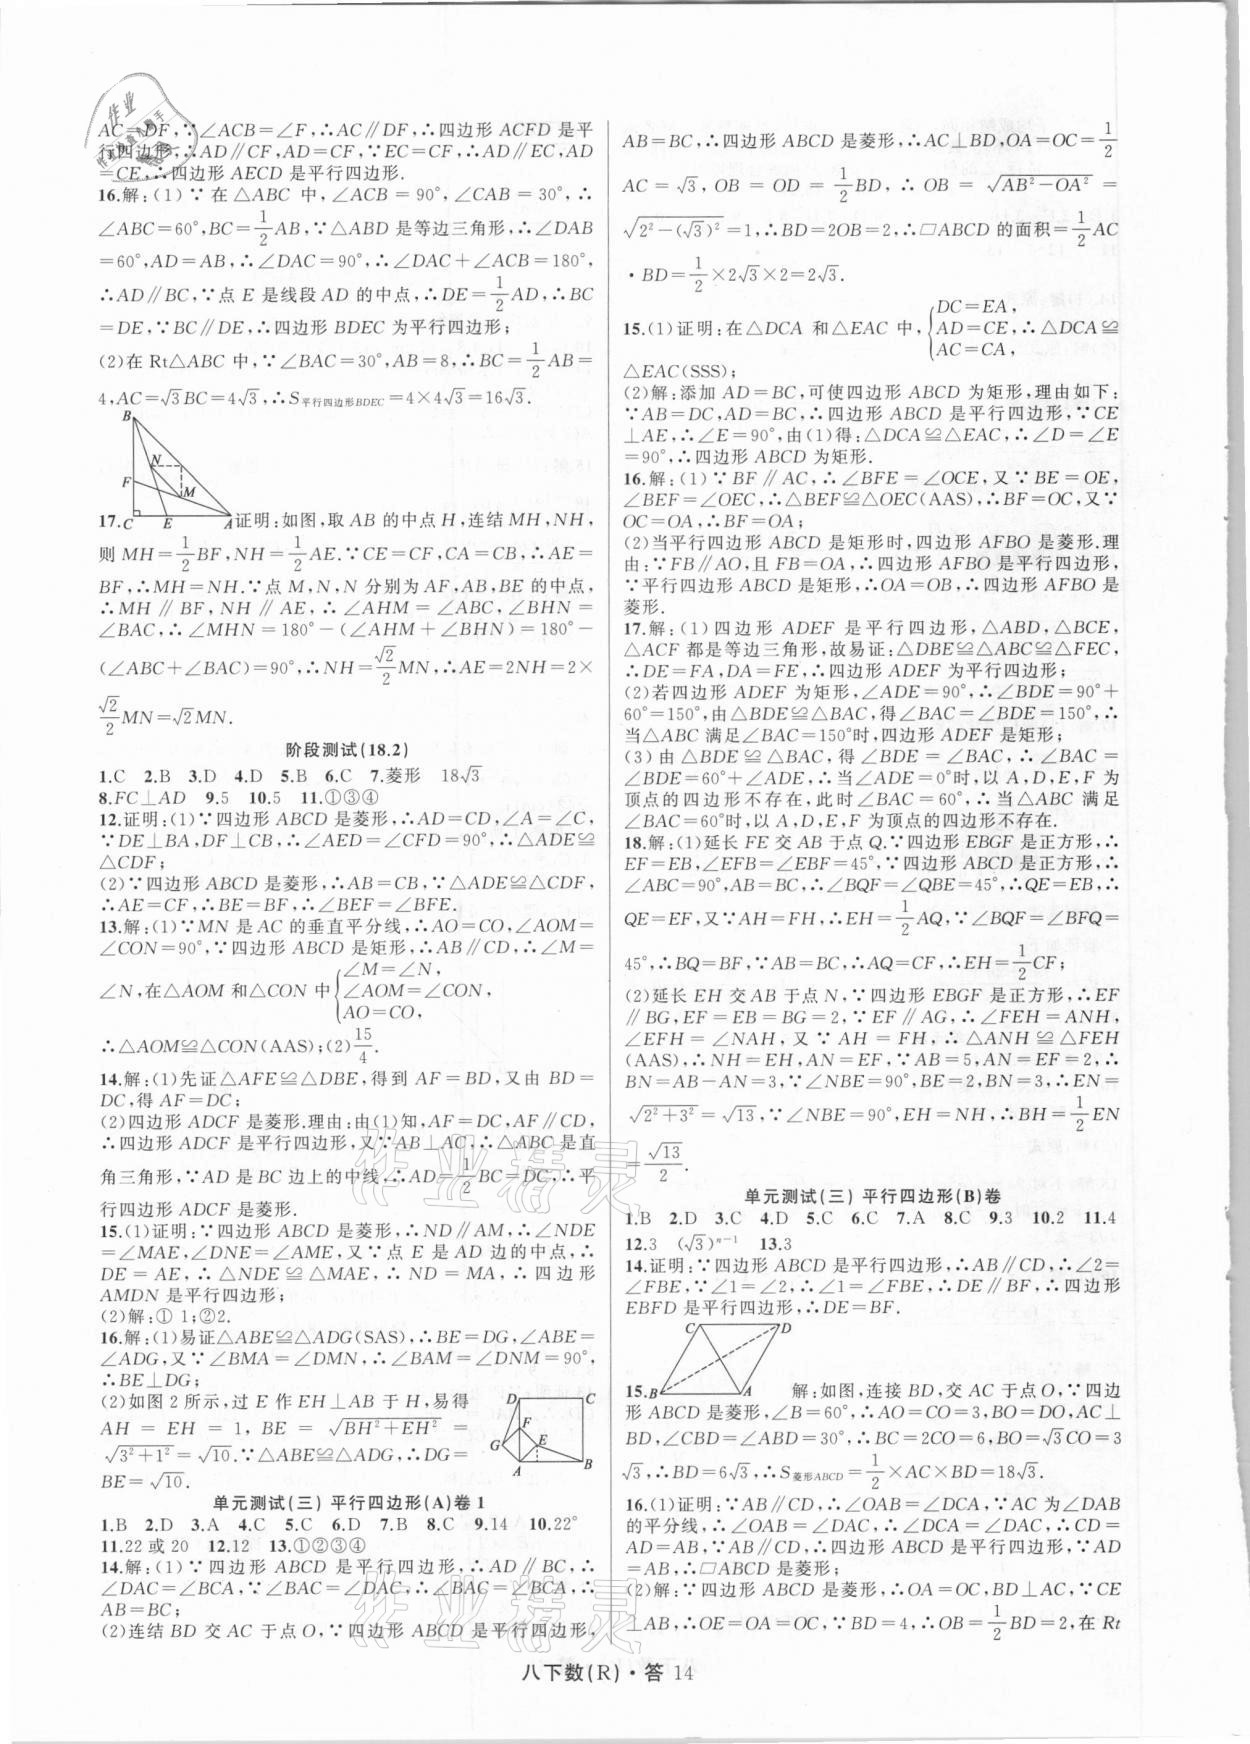 AC=DF,∵∠ACB=∠F,∴AC∥DF,∴四边形 ACFD 是平
行四边形,∴AD∥CF,AD=CF,∵EC=CF,∴AD∥EC,AD
=CE,∴四边形 AECD 是平行四边形.
16.解:(1)∵在△ABC 中,∠ACB=90°,∠CAB=30°,∴
∠ABC=60°,BC=1/2AB,∵△ABD 是等边三角形,∴∠DAB
=60°,AD=AB,∴∠DAC=90°,∴∠DAC+∠ACB=180°,
∴AD∥BC,∵点 E 是线段 AD 的中点,∴DE=1/2AD,∴BC
=DE,∵BC∥DE,∴四边形 BDEC 为平行四边形;
(2)在 Rt△ABC 中,∵∠BAC=30°,AB=8,∴BC=1/2AB=
4,AC=√3BC=4√3,∴S平行四边形BDEC=4×4√3=16√3.
B
N
F
M
C E A
17.证明:如图,取 AB 的中点 H,连结 MH,NH,
则 MH=1/2BF,NH=1/2AE.∵CE=CF,CA=CB,∴AE=
BF,∴MH=NH.∵点 M,N,N 分别为 AF,AB,BE 的中点,
∴MH∥BF,NH∥AE,∴∠AHM=∠ABC,∠BHN=
∠BAC,∴∠MHN=180°-(∠AHM+∠BHN)=180°-
(∠ABC+∠BAC)=90°,∴NH=√2/2MN,∴AE=2NH=2×
√2/2MN=√2MN.
阶段测试(18.2)
1.C 2.B 3.D 4.D 5.B 6.C 7.菱形 18√3
8.FC⊥AD 9.5 10.5 11.①③④
12.证明:(1)∵四边形 ABCD 是菱形,∴AD=CD,∠A=∠C,
∵DE⊥BA,DF⊥CB,∴∠AED=∠CFD=90°,∴△ADE≌
△CDF;
(2)∵四边形 ABCD 是菱形,∴AB=CB,∵△ADE≌△CDF,
∴AE=CF,∴BE=BF,∴∠BEF=∠BFE.
13.解:(1)∵MN 是 AC 的垂直平分线,∴AO=CO,∠AOM=
∠CON=90°,∵四边形 ABCD 是矩形,∴AB∥CD,∴∠M=
∠N,在△AOM 和△CON 中{∠M=∠N,
∠AOM=∠CON,
AO=CO,
∴△AOM≌△CON(AAS);(2)15/4.
14.解:(1)先证△AFE≌△DBE,得到 AF=BD,又由 BD=
DC,得 AF=DC;
(2)四边形 ADCF 是菱形.理由:由(1)知,AF=DC,AF∥CD,
∴四边形 ADCF 是平行四边形,又∵AB⊥AC,∴△ABC 是直
角三角形,∵AD 是 BC 边上的中线,∴AD=1/2BC=DC,∴平
行四边形 ADCF 是菱形.
15.(1)证明:∵四边形 ABCD 是菱形,∴ND∥AM,∴∠NDE
=∠MAE,∠DNE=∠AME,又∵点 E 是 AD 边的中点,∴
DE=AE,∴△NDE≌△MAE,∴ND=MA,∴四边形
AMDN 是平行四边形;
(2)解:① 1;②2.
16.解:(1)易证△ABE≌△ADG(SAS),∴BE=DG,∠ABE=
∠ADG,又∵∠BMA=∠DMN,∴∠BAM=∠DNM=90°,
∴BE⊥DG;
(2)如图 2 所示,过 E 作 EH⊥AB 于 H,易得
AH=EH=1,BE=√(BH²+EH²)=
√(3²+1²)=√10.∵△ABE≌△ADG,∴DG=
BE=√10.
D C
F
G E
A B
单元测试(三) 平行四边形(A)卷 1
1.B 2.D 3.A 4.C 5.C 6.D 7.B 8.C 9.14 10.22°
11.22 或 20 12.12 13.①②③④
14.解:(1)∵四边形 ABCD 是平行四边形,∴AD∥BC,∴
∠DAC=∠BCA,∵∠BAC=∠DAC,∴∠BAC=∠BCA,∴
AB=BC;
(2)连结 BD 交 AC 于点 O,∵四边形 ABCD 是平行四边形,
AB=BC,∴四边形 ABCD 是菱形,∴AC⊥BD,OA=OC=1/2
AC=√3,OB=OD=1/2BD,∴OB=√(AB²-OA²)=
√(2²-(√3)²)=1,∴BD=2OB=2,∴□ABCD 的面积=1/2AC
·BD=1/2×2√3×2=2√3.
15.(1)证明:在△DCA 和△EAC 中,{DC=EA,
AD=CE,∴△DCA≌
AC=CA,
△EAC(SSS);
(2)解:添加 AD=BC,可使四边形 ABCD 为矩形,理由如下:
∵AB=DC,AD=BC,∴四边形 ABCD 是平行四边形,∵CE
⊥AE,∴∠E=90°,由(1)得:△DCA≌△EAC,∴∠D=∠E
=90°,∴四边形 ABCD 为矩形.
16.解:(1)∵BF∥AC,∴∠BFE=∠OCE,又∵BE=OE,
∠BEF=∠OEC,∴△BEF≌△OEC(AAS),∴BF=OC,又∵
OC=OA,∴BF=OA;
(2)当平行四边形 ABCD 是矩形时,四边形 AFBO 是菱形.理
由:∵FB∥AO,且 FB=OA,∴四边形 AFBO 是平行四边形,
∵平行四边形 ABCD 是矩形,∴OA=OB,∴四边形 AFBO 是
菱形.
17.解:(1)四边形 ADEF 是平行四边形,△ABD,△BCE,
△ACF 都是等边三角形,故易证:△DBE≌△ABC≌△FEC,
∴DE=FA,DA=FE,∴四边形 ADEF 为平行四边形;
(2)若四边形 ADEF 为矩形,∠ADE=90°,∴∠BDE=90°+
60°=150°,由△BDE≌△BAC,得∠BAC=∠BDE=150°,∴
当△ABC 满足∠BAC=150°时,四边形 ADEF 是矩形;
(3)由△BDE≌△BAC,得∠BDE=∠BAC,∴∠BAC=
∠BDE=60°+∠ADE,∴当∠ADE=0°时,以 A,D,E,F 为
顶点的四边形不存在,此时∠BAC=60°,∴当△ABC 满足
∠BAC=60°时,以 A,D,E,F 为顶点的四边形不存在.
18.解:(1)延长 FE 交 AB 于点 Q.∵四边形 EBGF 是正方形,∴
EF=EB,∠EFB=∠EBF=45°,∵四边形 ABCD 是正方形,∴
∠ABC=90°,AB=BC,∴∠BQF=∠QBE=45°,∴QE=EB,∴
QE=EF,又∵AH=FH,∴EH=1/2AQ,∵∠BQF=∠BFQ=
45°,∴BQ=BF,∵AB=BC,∴AQ=CF,∴EH=1/2CF;
(2)延长 EH 交 AB 于点 N,∵四边形 EBGF 是正方形,∴EF
∥BG,EF=EB=BG=2,∵EF∥AG,∴∠FEH=ANH,
∠EFH=∠NAH,又∵AH=FH,∴△ANH≌△FEH
(AAS),∴NH=EH,AN=EF,∵AB=5,AN=EF=2,∴
BN=AB-AN=3,∵∠NBE=90°,BE=2,BN=3,∴EN=
√(2²+3²)=√13,∵∠NBE=90°,EH=NH,∴BH=1/2EN
=√13/2.
单元测试(三) 平行四边形(B)卷
1.B 2.D 3.C 4.D 5.C 6.C 7.A 8.C 9.3 10.2 11.4
12.3 (√3)ⁿ⁻¹ 13.3
14.证明:∵四边形 ABCD 是平行四边形,∴AB∥CD,∴∠2=
∠FBE,∵∠1=∠2,∴∠1=∠FBE,∴DE∥BF,∴四边形
EBFD 是平行四边形,∴DE=BF.
C D
B A
15. 解:如图,连接 BD,交 AC 于点 O,∵四边
形 ABCD 是菱形,∠B=60°,∴AO=CO=3,BO=DO,AC⊥
BD,∠CBD=∠ABD=30°,∴BC=2CO=6,BO=√3CO=3
√3,∴BD=6√3,∴S菱形ABCD=1/2×AC×BD=18√3.
16.(1)证明:∵AB∥CD,∴∠OAB=∠DCA,∵AC 为∠DAB
的平分线,∴∠OAB=∠DAC,∴∠DCA=∠DAC,∴CD=
AD=AB,∵AB∥CD,∴四边形 ABCD 是平行四边形,∵AD
=AB,∴□ABCD 是菱形;
(2)解:∵四边形 ABCD 是菱形,∴OA=OC,BD⊥AC,∵CE
⊥AB,∴OE=OA=OC,∵BD=4,∴OB=1/2BD=2,在 Rt
八下数(R)·答 14
作业精灵
作业精灵